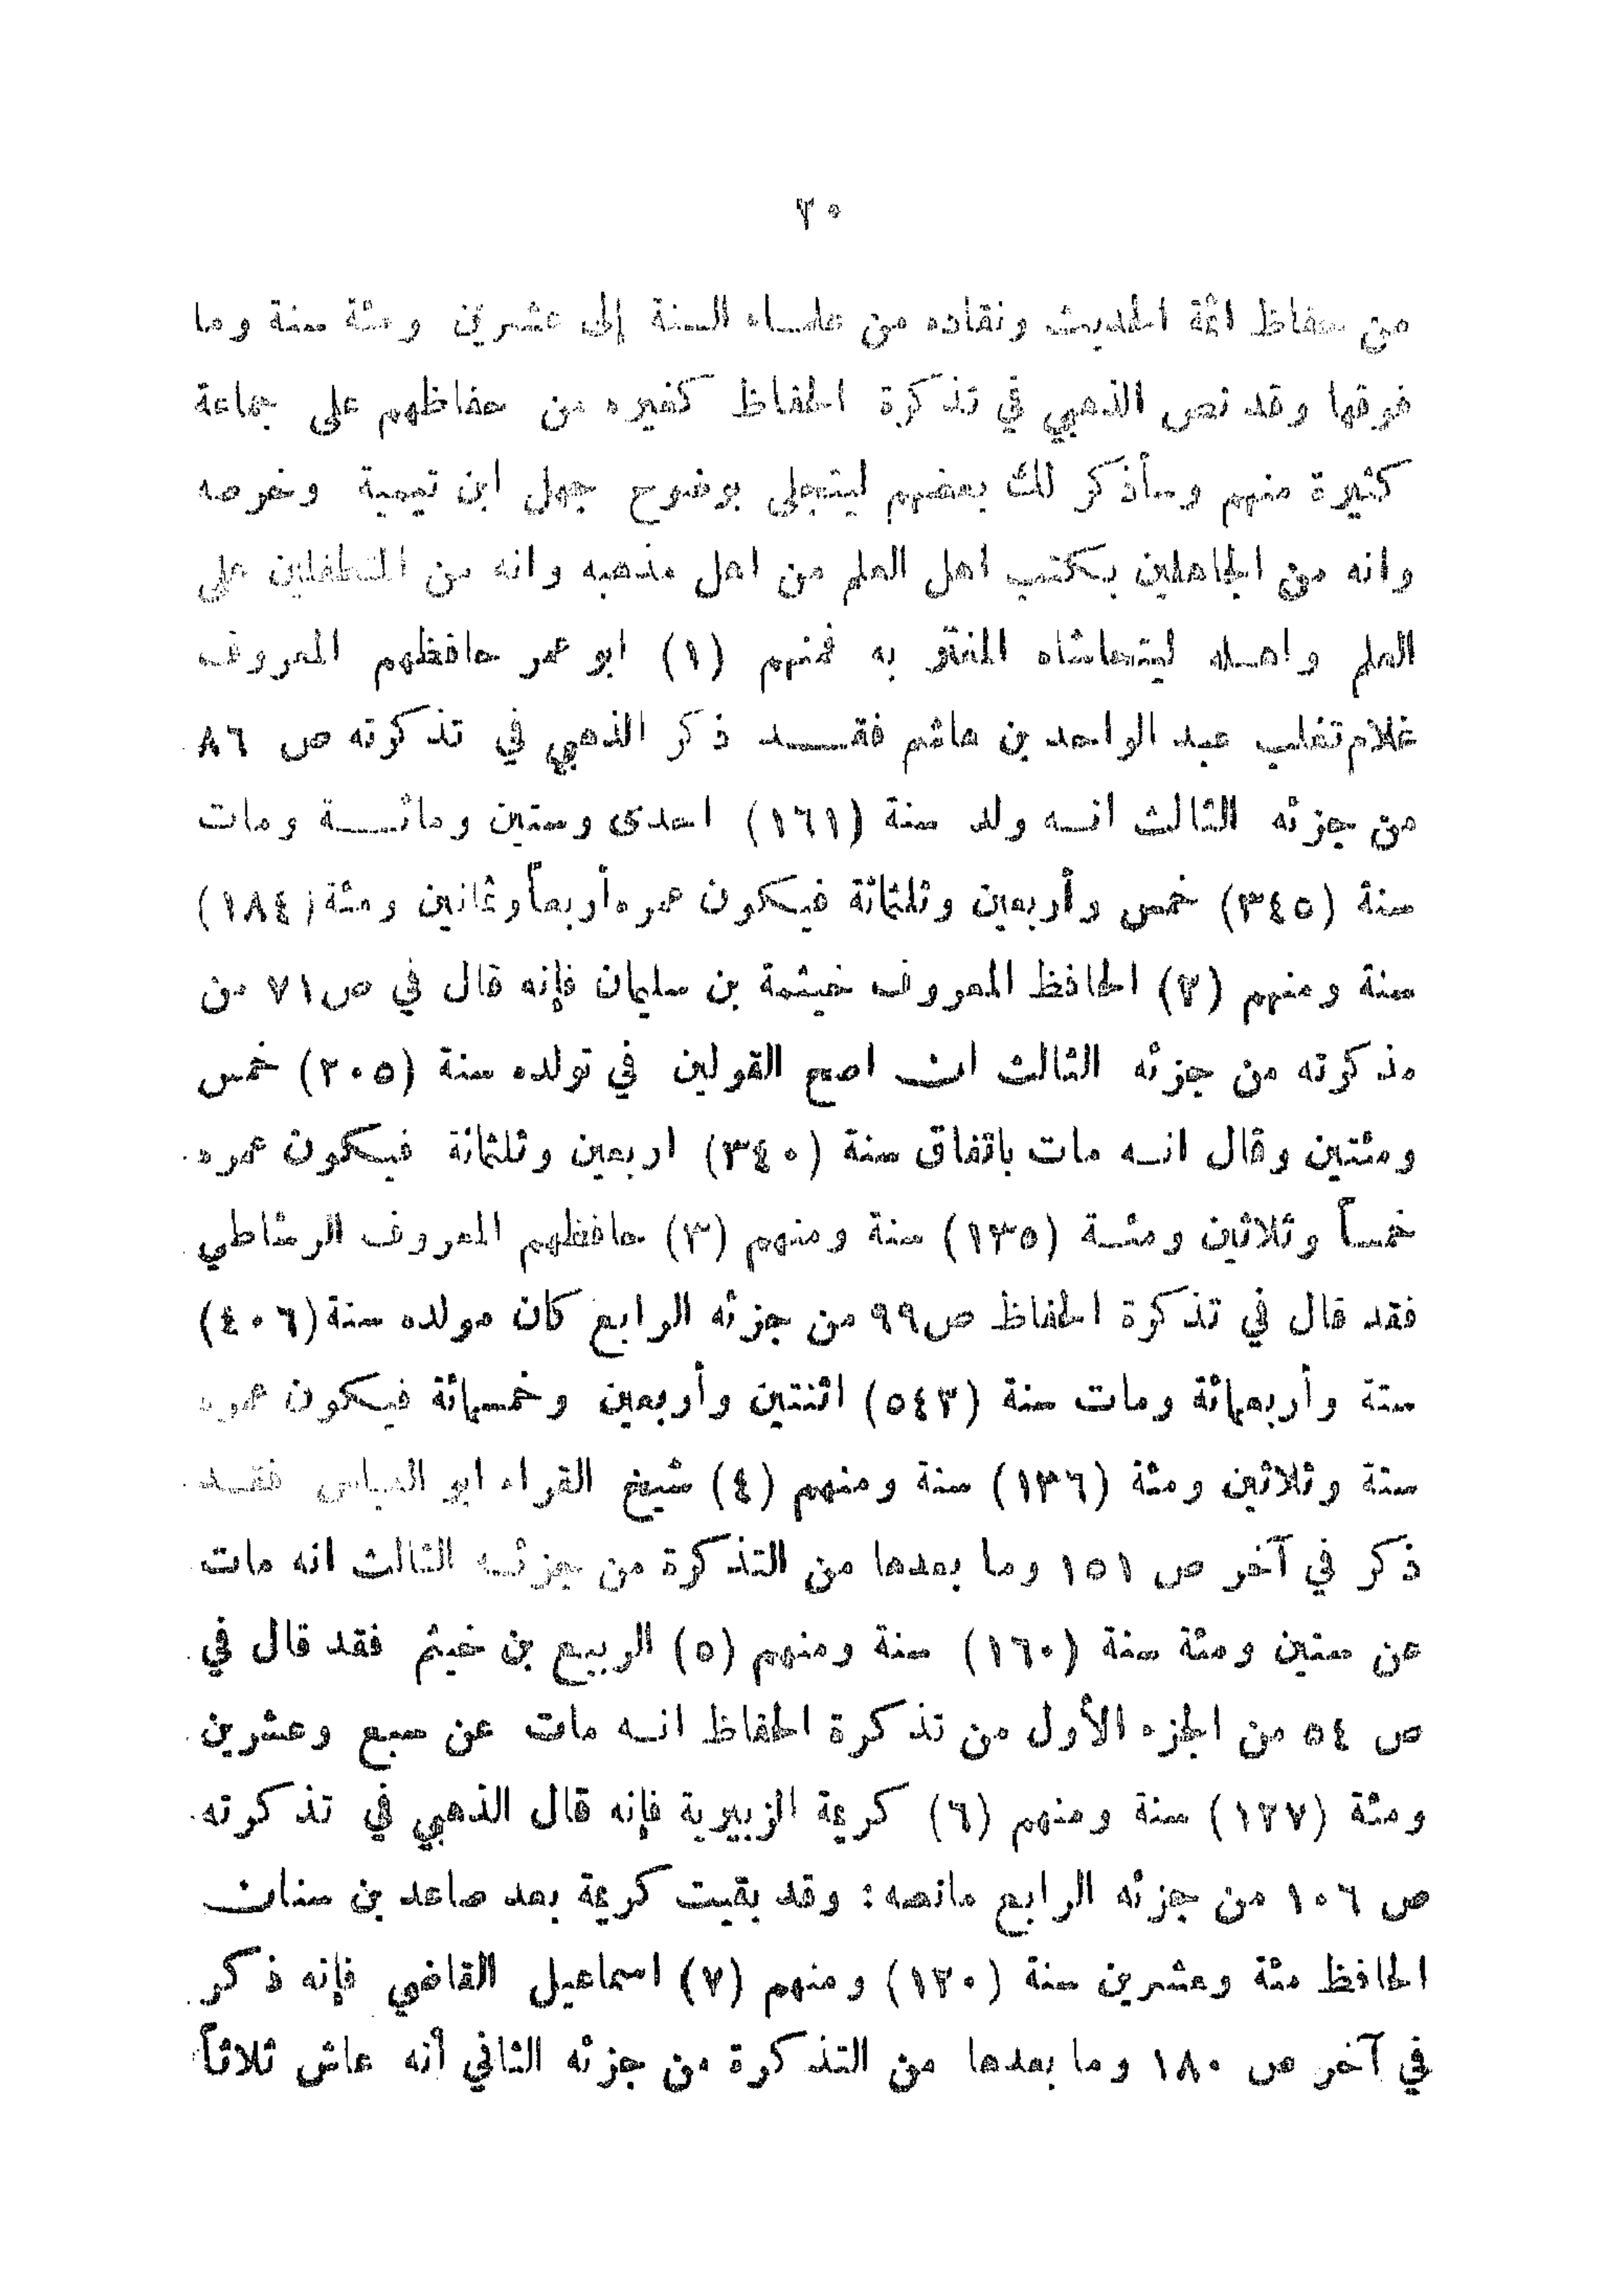 ٢٠
من حفاظ ائمة الحديث ونقاده من علماء السنة إلى عشرين ومئة سنة وما
فوقها وقد نص الذهبي في تذكرة الحفاظ كغيره من حفاظهم على جماعة
كثيرة منهم وسأذكر لك بعضهم ليتجلى بوضوح جهل ابن تيمية وخرصه
وانه من الجاهلين بكتب اهل العلم من اهل مذهبه وانه من المتطفلين على
العلم واهله ليتحاشاه المغتر به فمنهم (١) ابو عمر حافظهم المعروف
غلام تغلب عبد الواحد بن هاشم فقد ذكر الذهبي في تذكرته ص ٨٦
من جزئه الثالث انه ولد سنة (١٦١) احدى وستين ومائة ومات
سنة (٣٤٥) خمس وأربعين وثلثمائة فيكون عمره أربعاً وثمانين ومئة (١٨٤)
سنة ومنهم (٢) الحافظ المعروف خيثمة بن سليمان فإنه قال في ص ٧١ من
مذكرته من جزئه الثالث ان اصح القولين في تولده سنة (٢٠٥) خمس
ومئتين وقال انه مات باتفاق سنة (٣٤٠) اربعين وثلثمائة فيكون عمره
خمساً وثلاثين ومئة (١٣٥) سنة ومنهم (٣) حافظهم المعروف الرشاطي
فقد قال في تذكرة الحفاظ ص ٩٩ من جزئه الرابع كان مولده سنة (٤٠٦)
ستة وأربعمائة ومات سنة (٥٤٢) اثنتين وأربعين وخمسمائة فيكون عمره
ستة وثلاثين ومئة (١٣٦) سنة ومنهم (٤) شيخ القراء ابو العباس فقد
ذكر في آخر ص ١٥١ وما بعدها من التذكرة من جزئه الثالث انه مات
عن ستين ومئة سنة (١٦٠) سنة ومنهم (٥) الربيع بن خيثم فقد قال في
ص ٥٤ من الجزء الأول من تذكرة الحفاظ انه مات عن سبع وعشرين
ومئة (١٢٧) سنة ومنهم (٦) كريمة الزبيرية فإنه قال الذهبي في تذكرته
ص ١٠٦ من جزئه الرابع مانصه : وقد بقيت كريمة بعد صاعد بن سنان
الحافظ مئة وعشرين سنة (١٢٠) ومنهم (٧) اسماعيل القاضي فإنه ذكر
في آخر ص ١٨٠ وما بعدها من التذكرة من جزئه الثاني أنه عاش ثلاثاً